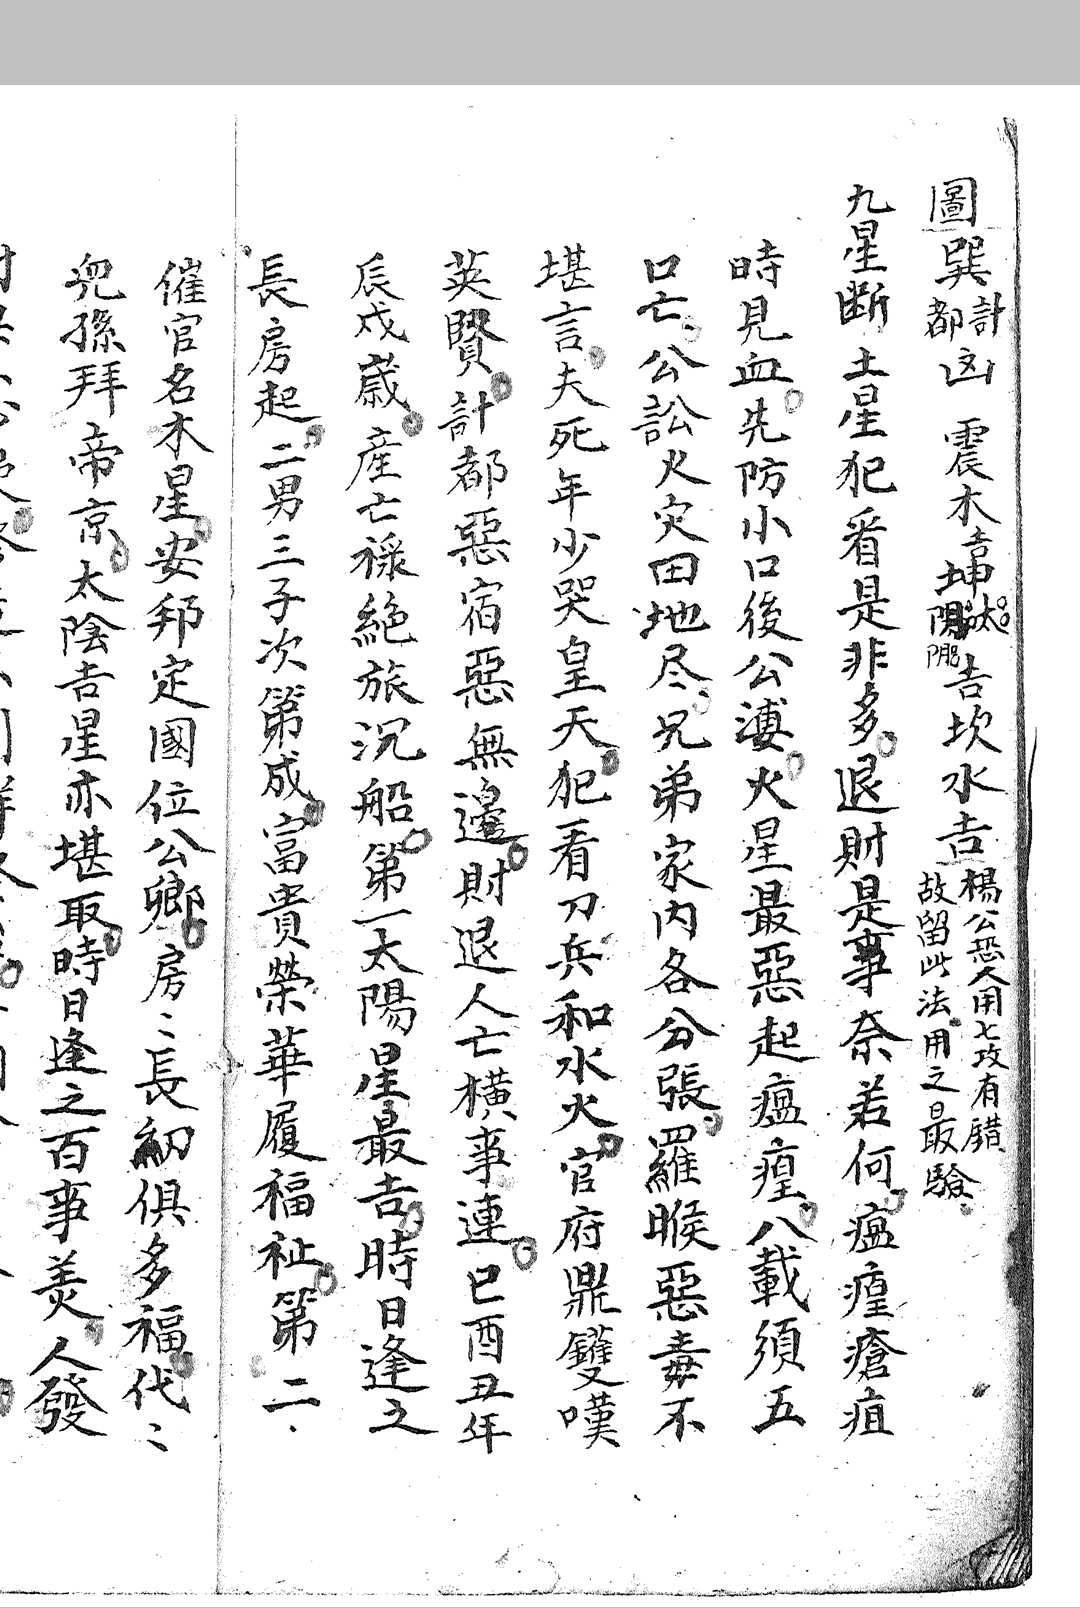 圖巽計都凶 震木吉坤太陰吉坎水吉楊公恐人用七政有錯故留此法用之最驗
九星断 土星犯看是非多退財是事奈若何瘟瘟瘡疽
時見血先防小口後公婆火星最惡起瘟瘟八載須五
口亡公訟火灾田地尽兄弟家内各分張羅睺惡毒不
堪言夫死年少哭皇天犯看刀兵和水火官府鼎鑊嘆
英賢計都惡宿惡無邊財退人亡橫事連巳酉丑年
辰戌歲産亡祿絕旅沉船第一太陽星最吉時日逢之
長房起二男三子次第成富貴榮華履福祉第二
催官名木星安邦定國位公卿房〻長幼俱多福代〻
兜孫拜帝京太陰吉星亦堪取時日逢之百事美人發